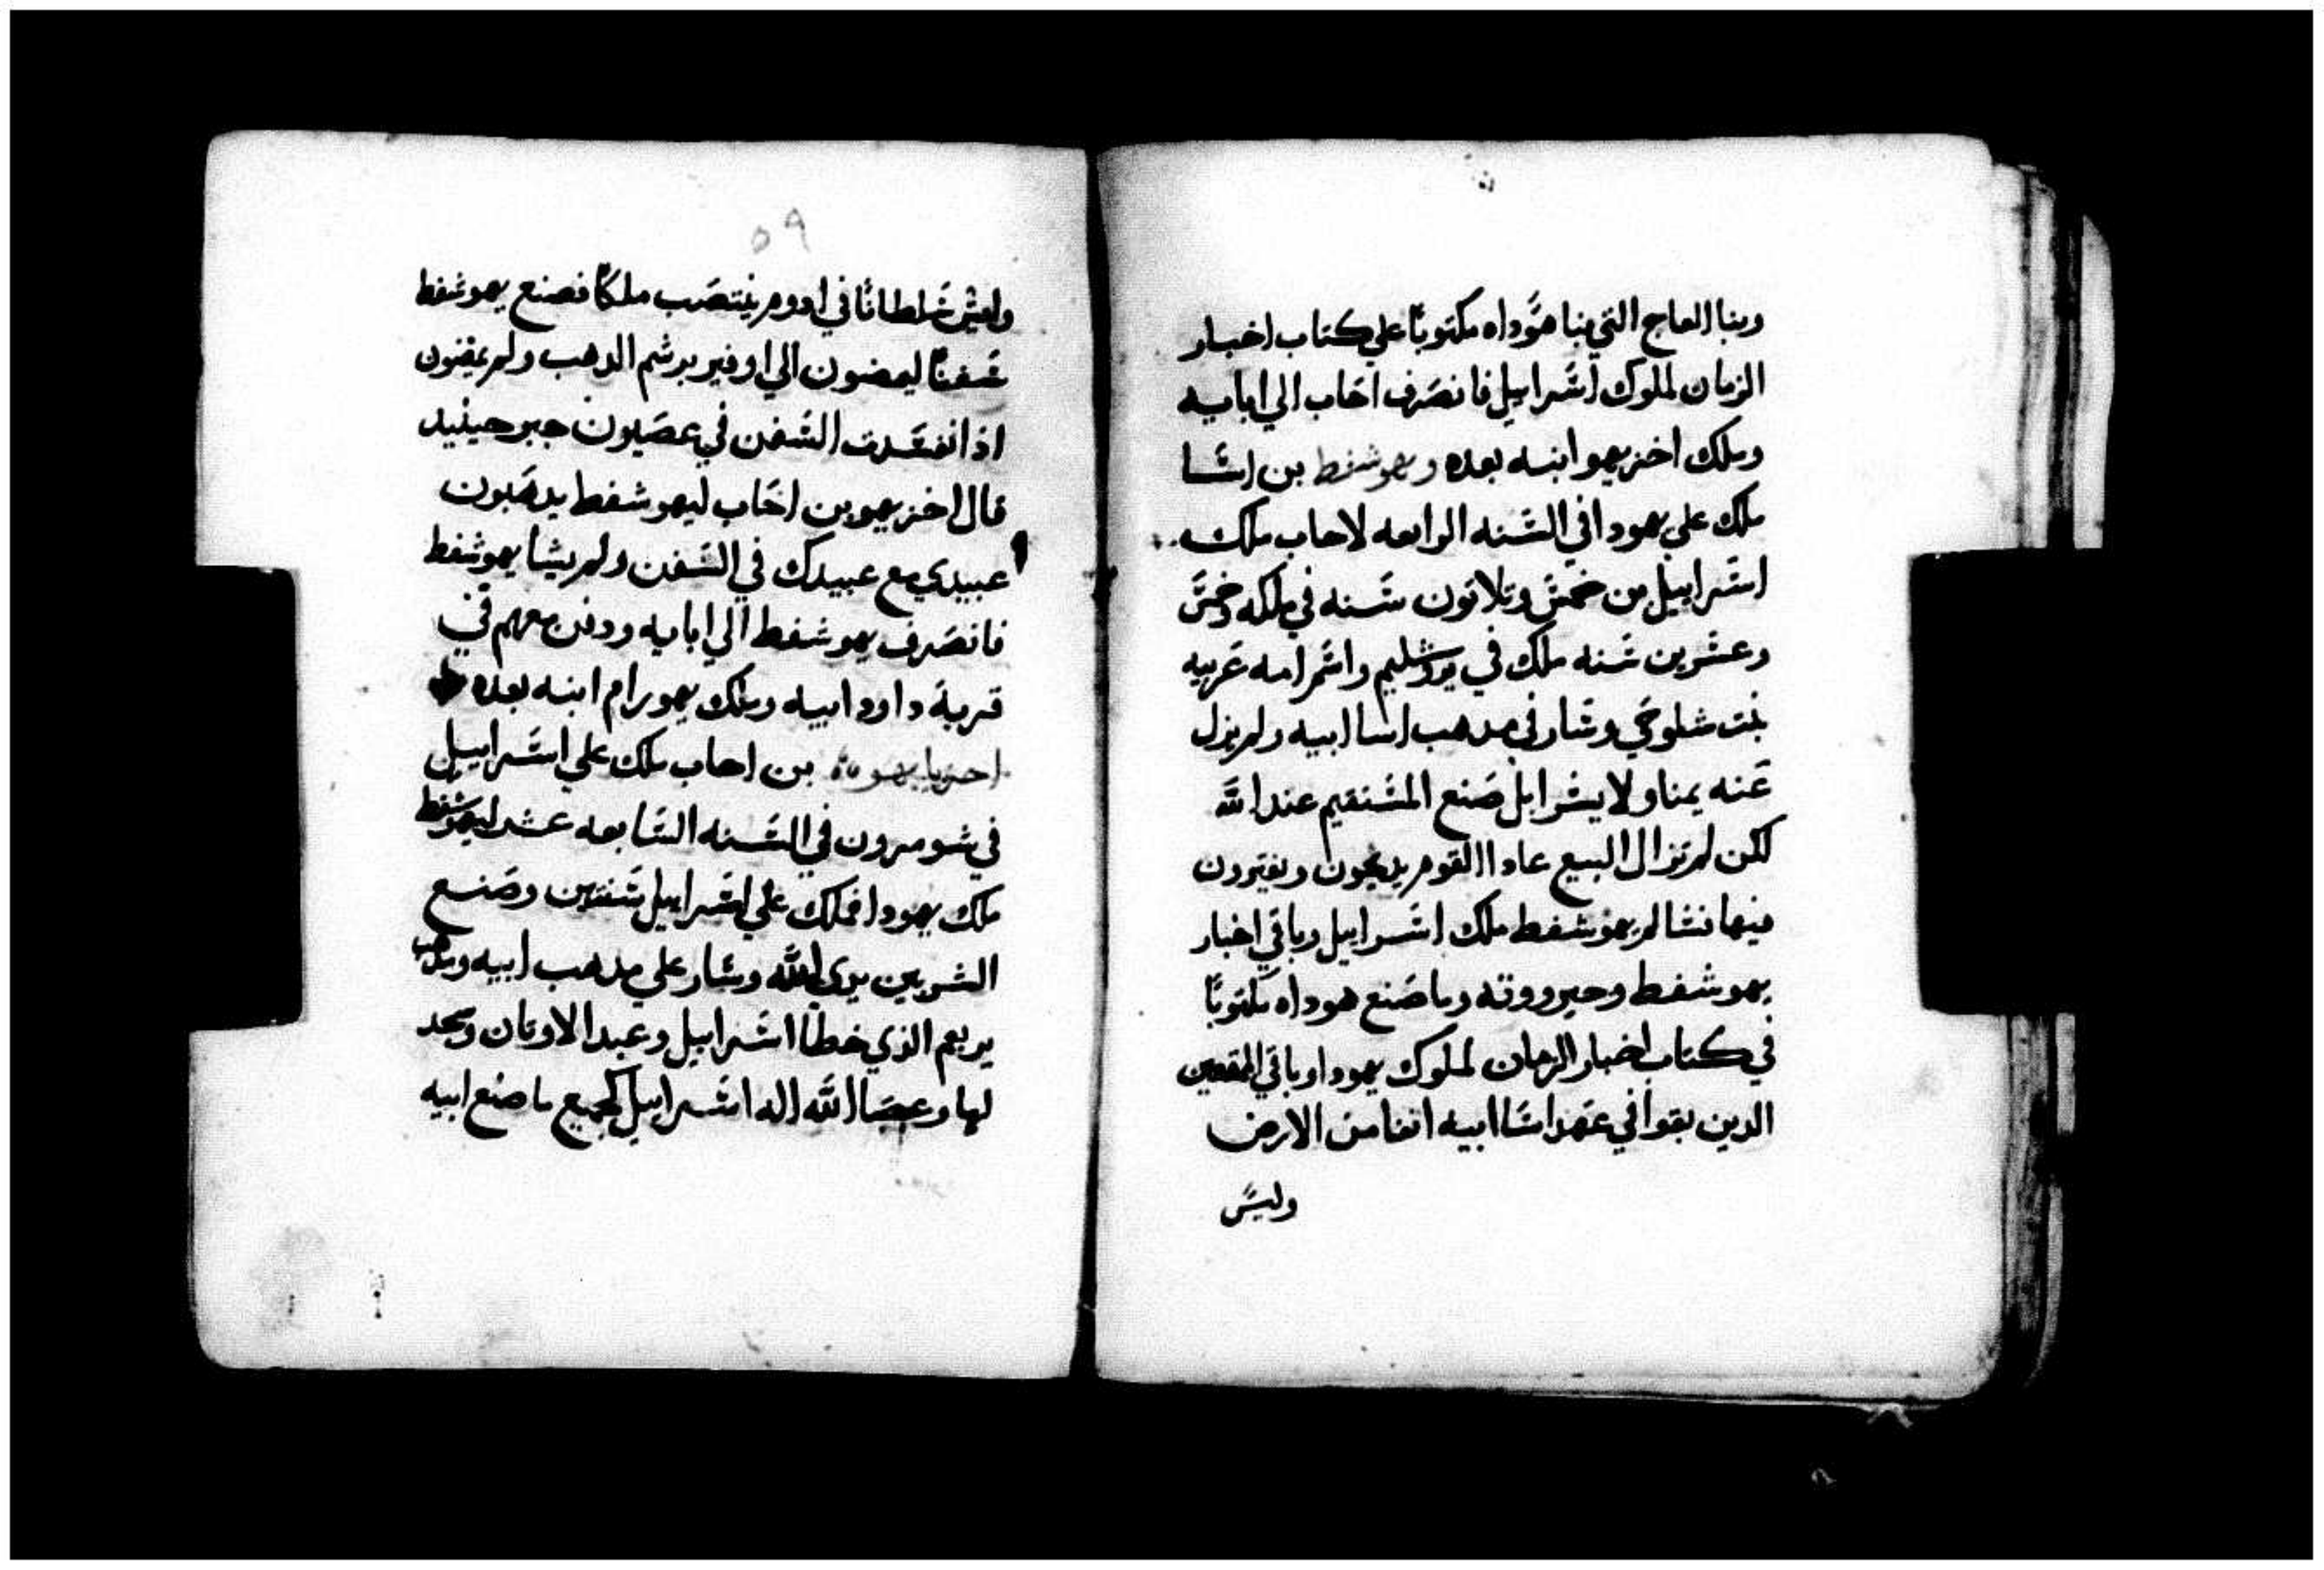 وبنا العاج التي بنا هوداه مكتوبًا علي كتاب اخبار
الزمان لملوك اسرابيل فانصرف احاب الي ابايه
وملك اخزيهو ابنه بعده ويهوشفط بن اسا
ملك علي يهودا في السنه الرابعه لاحاب ملك
اسرابيل من خمس وتلاتون سنه في ملكه وخمس
وعشرين سنه ملك في يروشليم واسم امه عزبيه
بنت شلوحي وسار في مدهب اسا ابيه ولم يزل
عنه يمنا ولا يشرا بل صنع المستقيم عند الله
لكن لم تزال البيع عاد القوم يدبحون ويفترون
فيها فسالم يهوشفط ملك اسرابيل وباقي اخبار
يهوشفط وجبرووته وما صنع هوداه مكتوبًا
في كتاب اخبار الزمان لملوك يهودا وباقي
الدين بقوا في عهد اسا ابيه افنا من الارض
وليس
٥٩
وليس سلطانًا في ادوم ينتصب ملكًا فصنع يهوشفط
سفنًا ليمضون الي اوفير برسم الدهب ولم يمضون
اذ انفسدت السفن في عصيون جبر حينيد
قال اخزيهو بن احاب ليهوشفط يدهبون
عبيدي مع عبيدك في السفن ولم يشا يهوشفط
فانصرف يهوشفط الي ابايه ودفن معهم في
قرية داود ابيه وملك يهورام ابنه بعده
بن احاب ملك علي اسرابيل
في شومرون في السنه السابعه عشر ليهوشفط
ملك يهودا فملك علي اسرابيل سنتين وصنع
الشر بين يدي الله وسار علي مدهب ابيه ومدهب
يربعم الذي خطا اسرابيل وعبد الاوتان وسجد
لها وعصا الله اله اسرابيل كجميع ما صنع ابيه